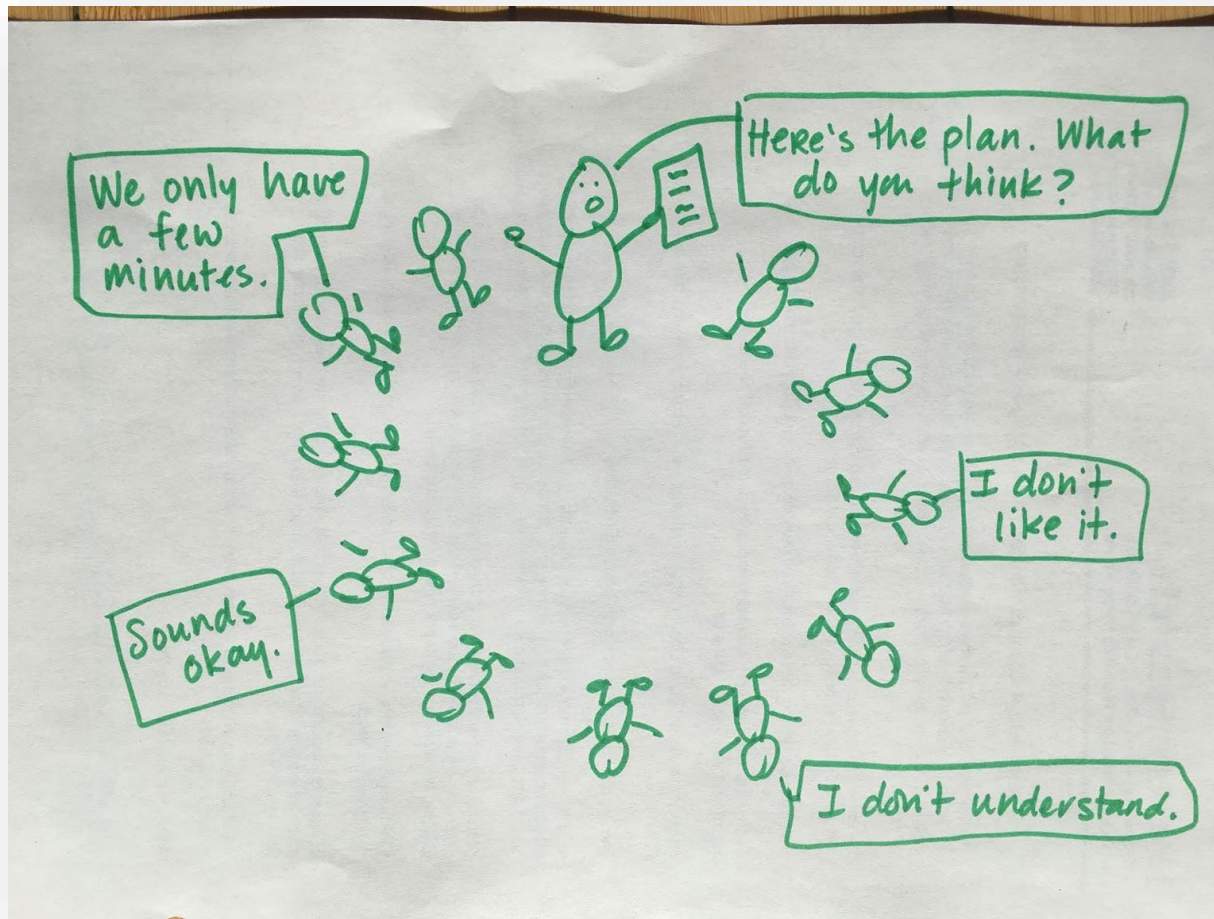 We only have
a few
minutes.
Here's the plan. What
do you think?
I don't
like it.
Sounds
okay.
I don't understand.